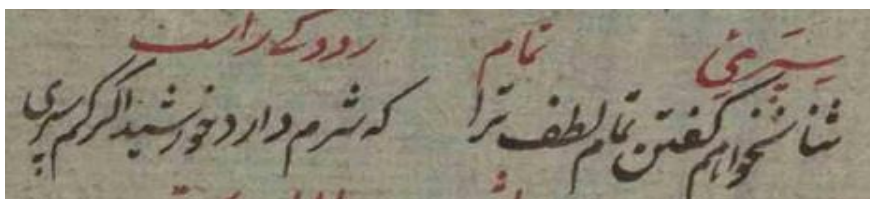 سپری تمام رودکی راست
ثنا نخواهم گفتن تمام لطف ترا که شرم دارد خورشید اگر کنم سپری